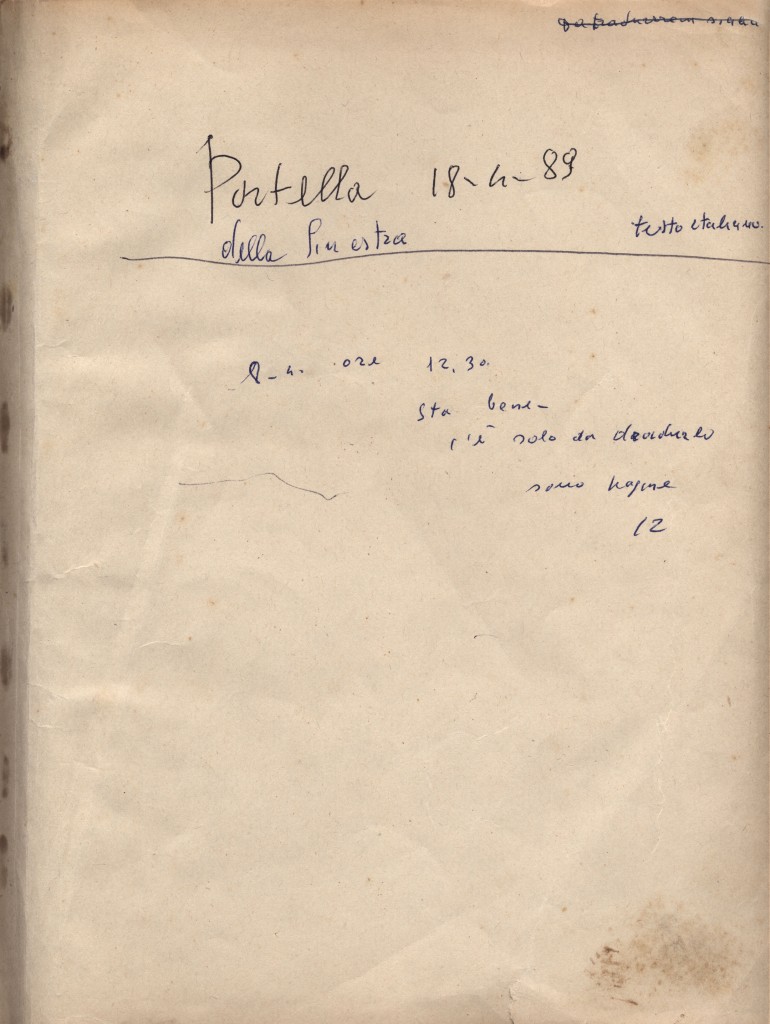 Portella 18-4-89
della Ginestra
testo italiano.
8-4. ore 12,30.
Sta bene-
c'è solo da
sono pagine
12